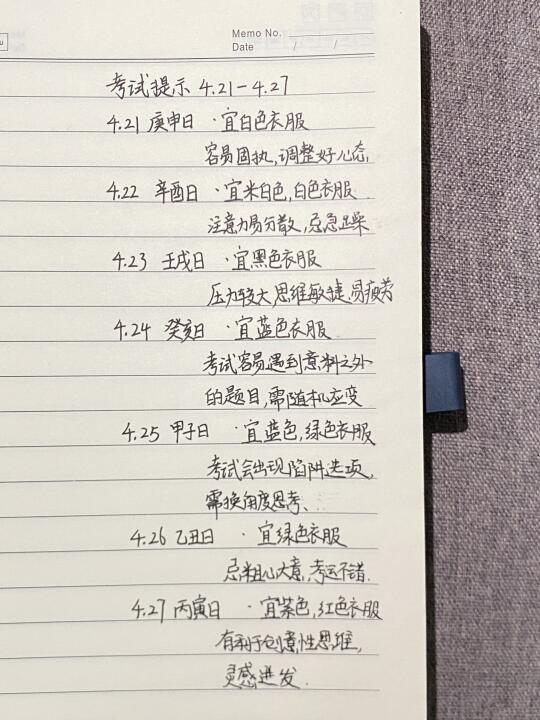 Memo No.
Date / /
考试提示 4.21-4.27
4.21 庚申日 ·宜白色衣服
容易固执,调整好心态,
4.22 辛酉日 ·宜米白色,白色衣服
注意力易分散,忌急躁
4.23 壬戌日 ·宜黑色衣服
压力较大思维敏捷,易疲劳
4.24 癸亥日 ·宜蓝色衣服
考试容易遇到意料之外
的题目,需随机应变
4.25 甲子日 ·宜蓝色,绿色衣服
考试会出现陷阱选项,
需换角度思考、
4.26 乙丑日 ·宜绿色衣服
忌粗心大意,考运不错.
4.27 丙寅日 ·宜紫色,红色衣服
有利于创意性思维,
灵感迸发.